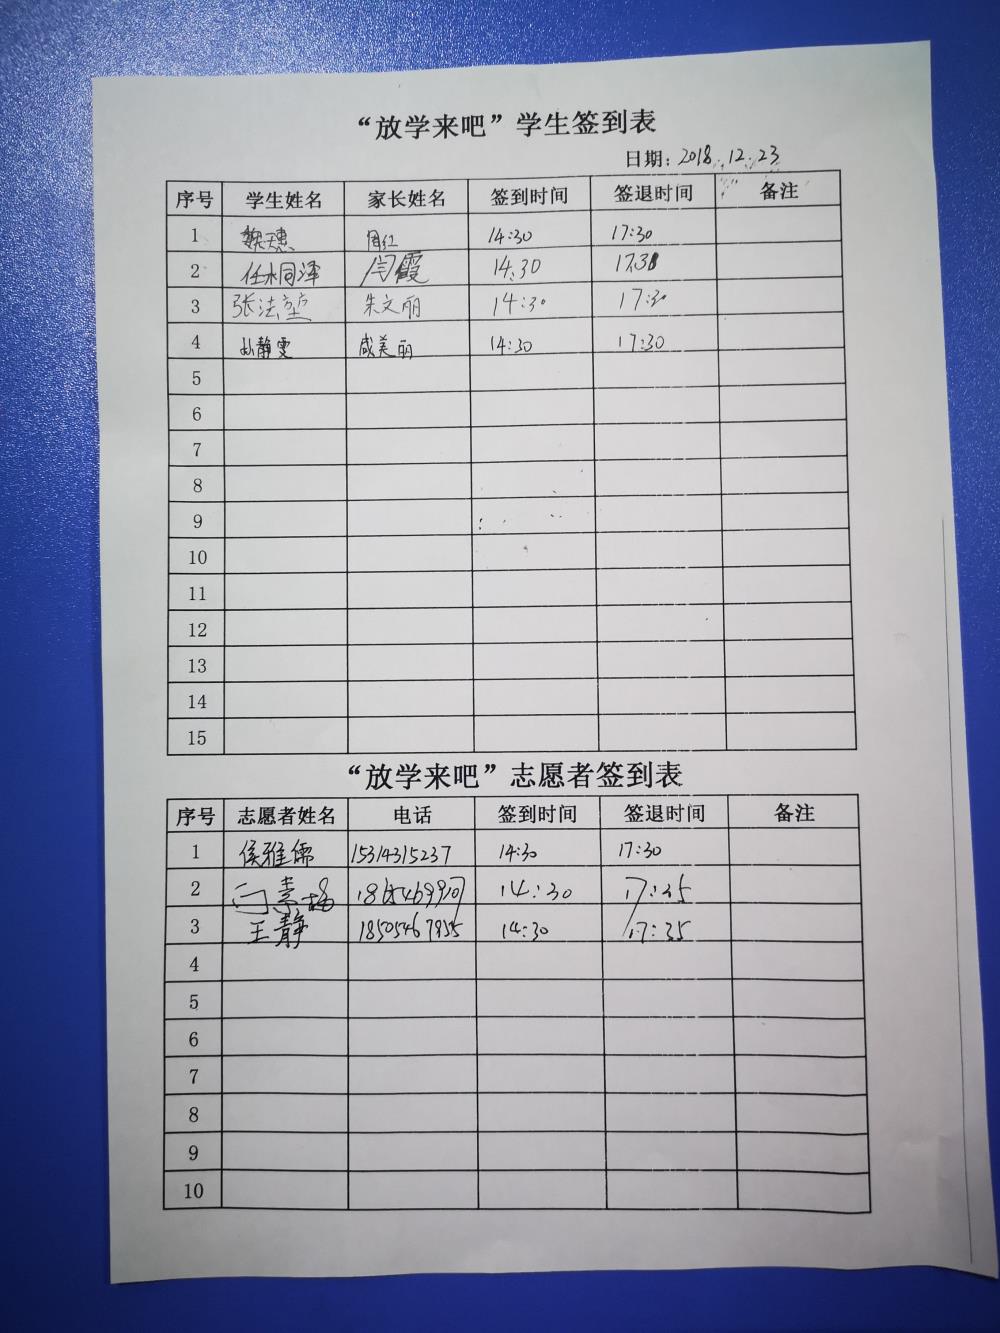 “放学来吧”学生签到表
日期：2018.12.23
序号 学生姓名 家长姓名 签到时间 签退时间 备注
1 魏天惠 周红 14:30 17:30
2 闫霞 14:30 17:30
3 朱文丽 14:30 17:30
4 静雯 咸美丽 14:30 17:30
5
6
7
8
9
10
11
12
13
14
15
“放学来吧”志愿者签到表
序号 志愿者姓名 电话 签到时间 签退时间 备注
1 侯雅儒 15314315237 14:30 17:30
2 闫素梅 14:30 17:35
3 王静 14:30 17:35
4
5
6
7
8
9
10